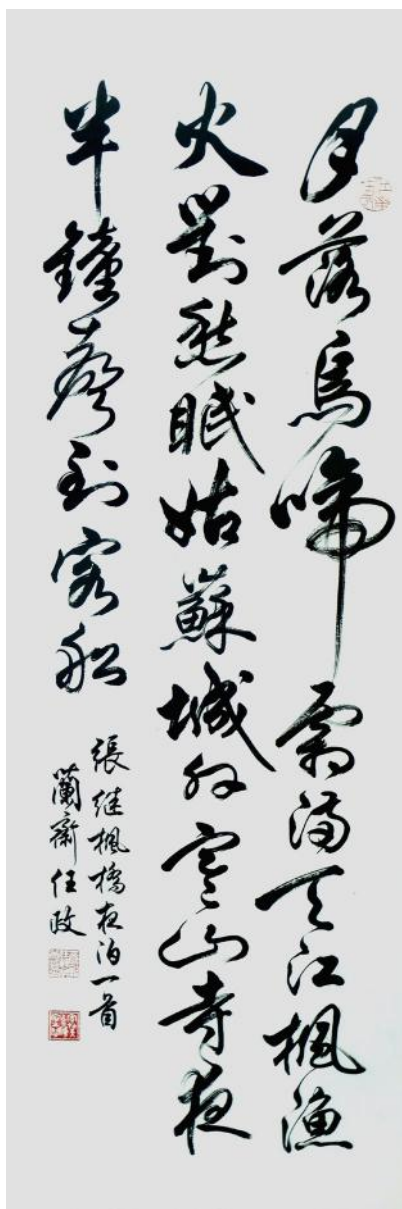 月落烏啼霜满天江楓渔
火對愁眠姑蘇城外寒山寺夜
半鐘聲到客船
張继楓橋夜泊一首
蘭齋任政